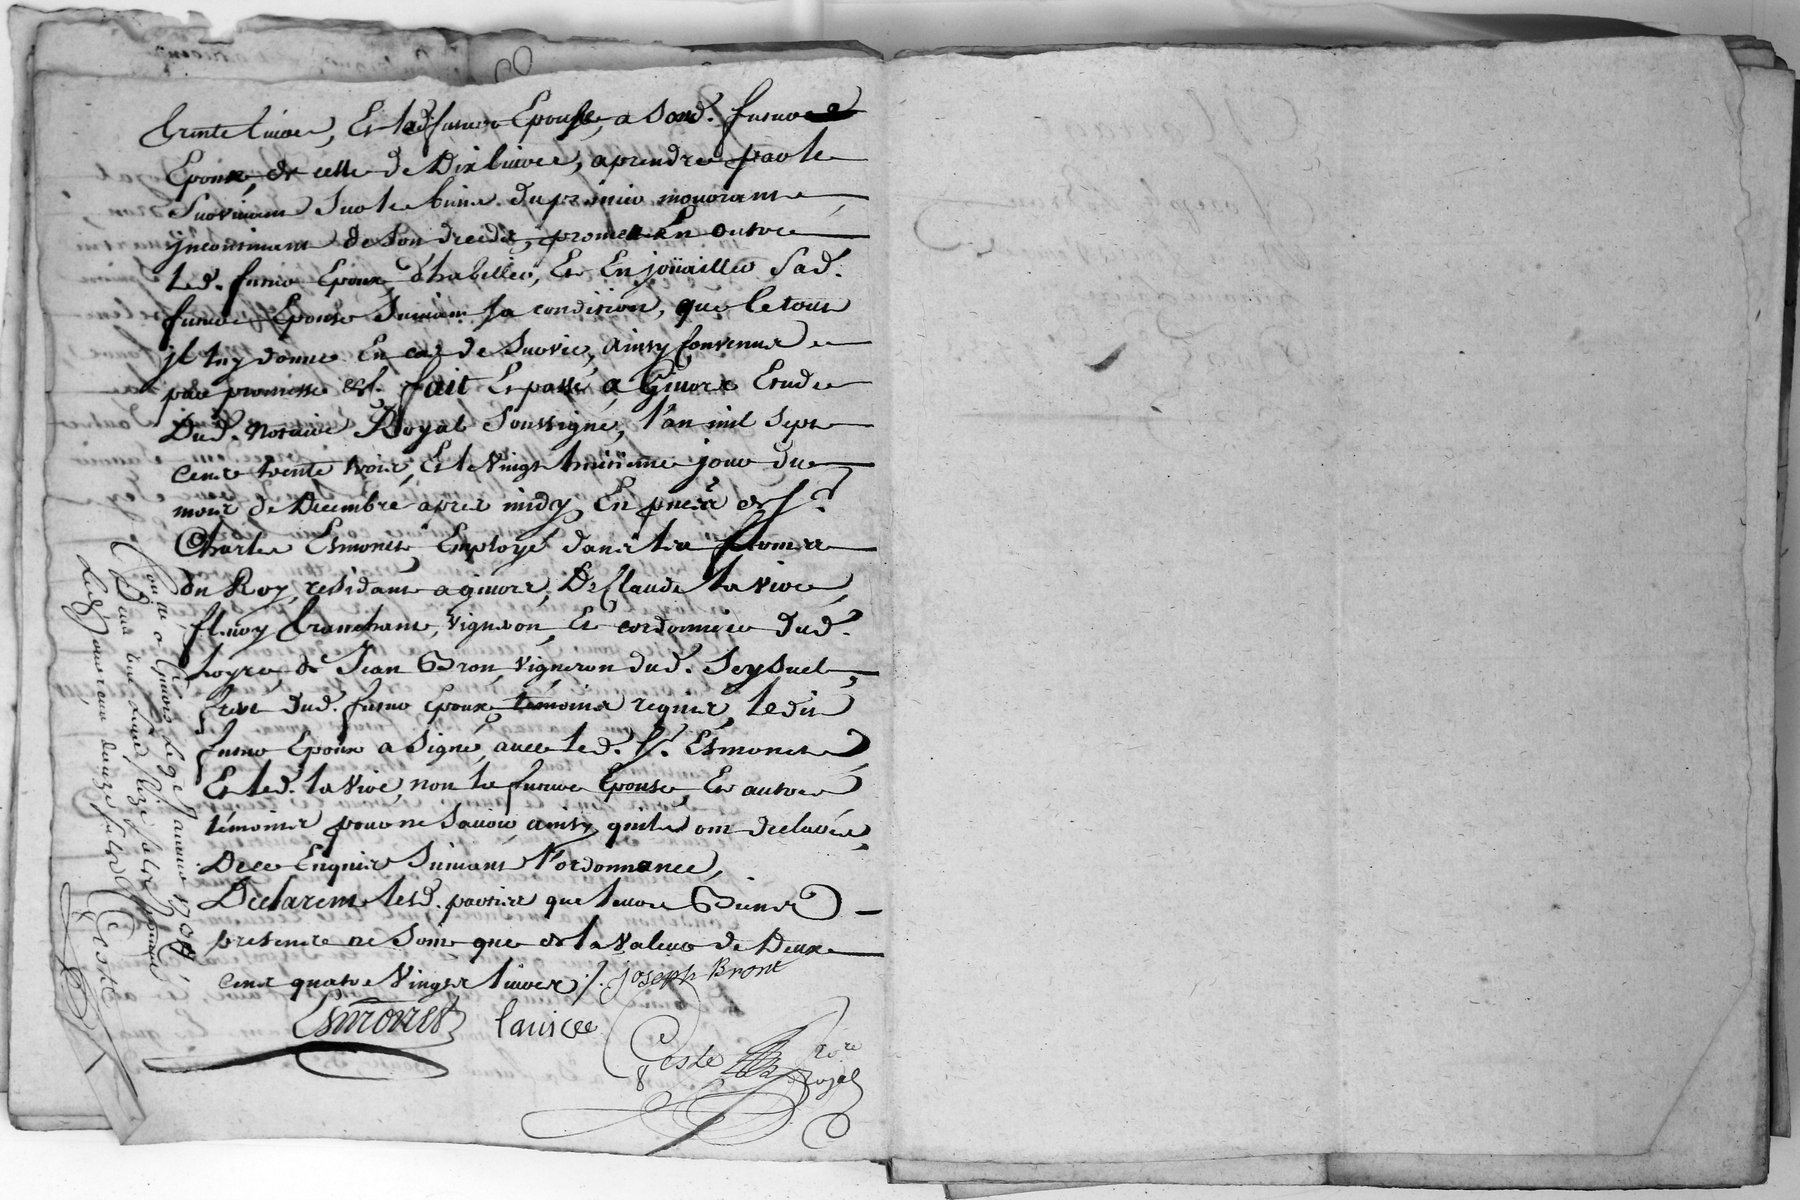 trente livres, Et lad. future Epouse, a sond. futur
Epoux, de celle de Dix livres, a prendre par le
Survivant Sur les biens du premier mourant
jncontinant de son decéds, promet En outre
led. futur Epoux d'habiller, Et En joüailler Sad.
future Epouse Suivant sa condition, que le tout
jl luy donne En cas de Survie, ainsy Convenu
par promesse &c. fait Et passé, a Givors Etude
Dud. Notaire Royal Soussigné, l'an mil Sept
Cent trente trois, Et le Vingt huitieme jour du
mois de Decembre apres midy, En pnce de Sr.
Charles Esmonet Employé dans les fermes
du Roy, residant a givors, De Claude la Vire,
fleury tranchant, Vigneron, Et cordonnier dud.
loyre, de Jean Bron, Vigneron dud. Seysuel,
frere dud. futur Epoux, témoins requis, ledit
futur Epoux a signé, avec led. Sr. Esmonet
Et led. la Vire, non la future Epouse, Et autres
témoins pour ne Savoir, ainsy quils ont declaré,
De ce Enquis Suivant l'ordonnance,
Declarent lesd. parties que leurs Biens
presents ne Sont que de la Valeur de Deux
Cent quatre Vingts livres /. Joseph Bront
Esmonet lavire
Coste Nore Royal
Controllé a Givors le 9e Janvier 1734
Reçu livre Seize sols
Led. Jour reçu douze sols
Coste